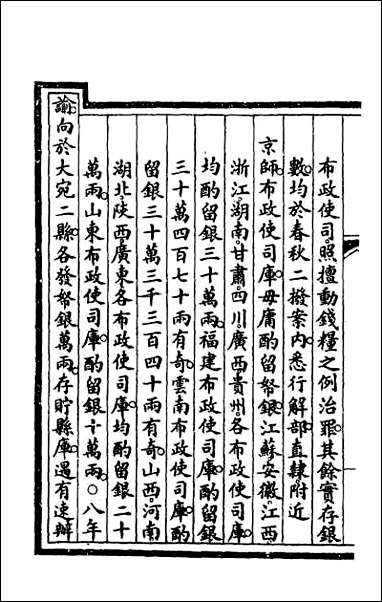 布政使司照擅動錢糧之例治罪其餘實存銀
數均於春秋二撥案内悉行解部直隸附近
京師布政使司庫毋庸酌留帑銀江蘇安徽江西
浙江湖南甘肅四川廣西貴州各布政使司庫
均酌留銀三十萬兩福建布政使司庫酌留銀
三十萬四百七十兩有奇雲南布政使司庫酌
留銀三十萬三千三百四十兩有奇山西河南
湖北陝西廣東各布政使司庫均酌留銀二十
萬兩山東布政使司庫酌留銀十萬兩○八年
諭向於大宛二縣各發帑銀萬兩存貯縣庫遇有速辦